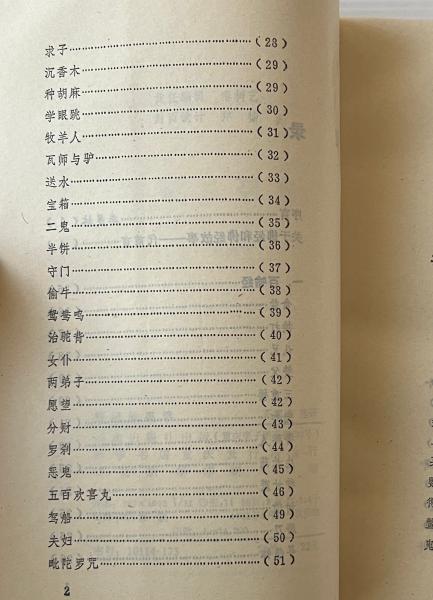 求子……(28)
沉香木……(29)
种胡麻……(29)
学眼跳……(30)
牧羊人……(31)
瓦师与驴……(32)
送水……(33)
宝箱……(34)
二鬼……(35)
半饼……(36)
守门……(37)
偷牛……(38)
鸳鸯鸣……(39)
治驼背……(40)
女仆……(41)
两弟子……(42)
愿望……(42)
分财……(43)
罗刹……(44)
恶鬼……(45)
五百欢喜丸……(46)
驾船……(49)
夫妇……(50)
毗陀罗咒……(51)
2